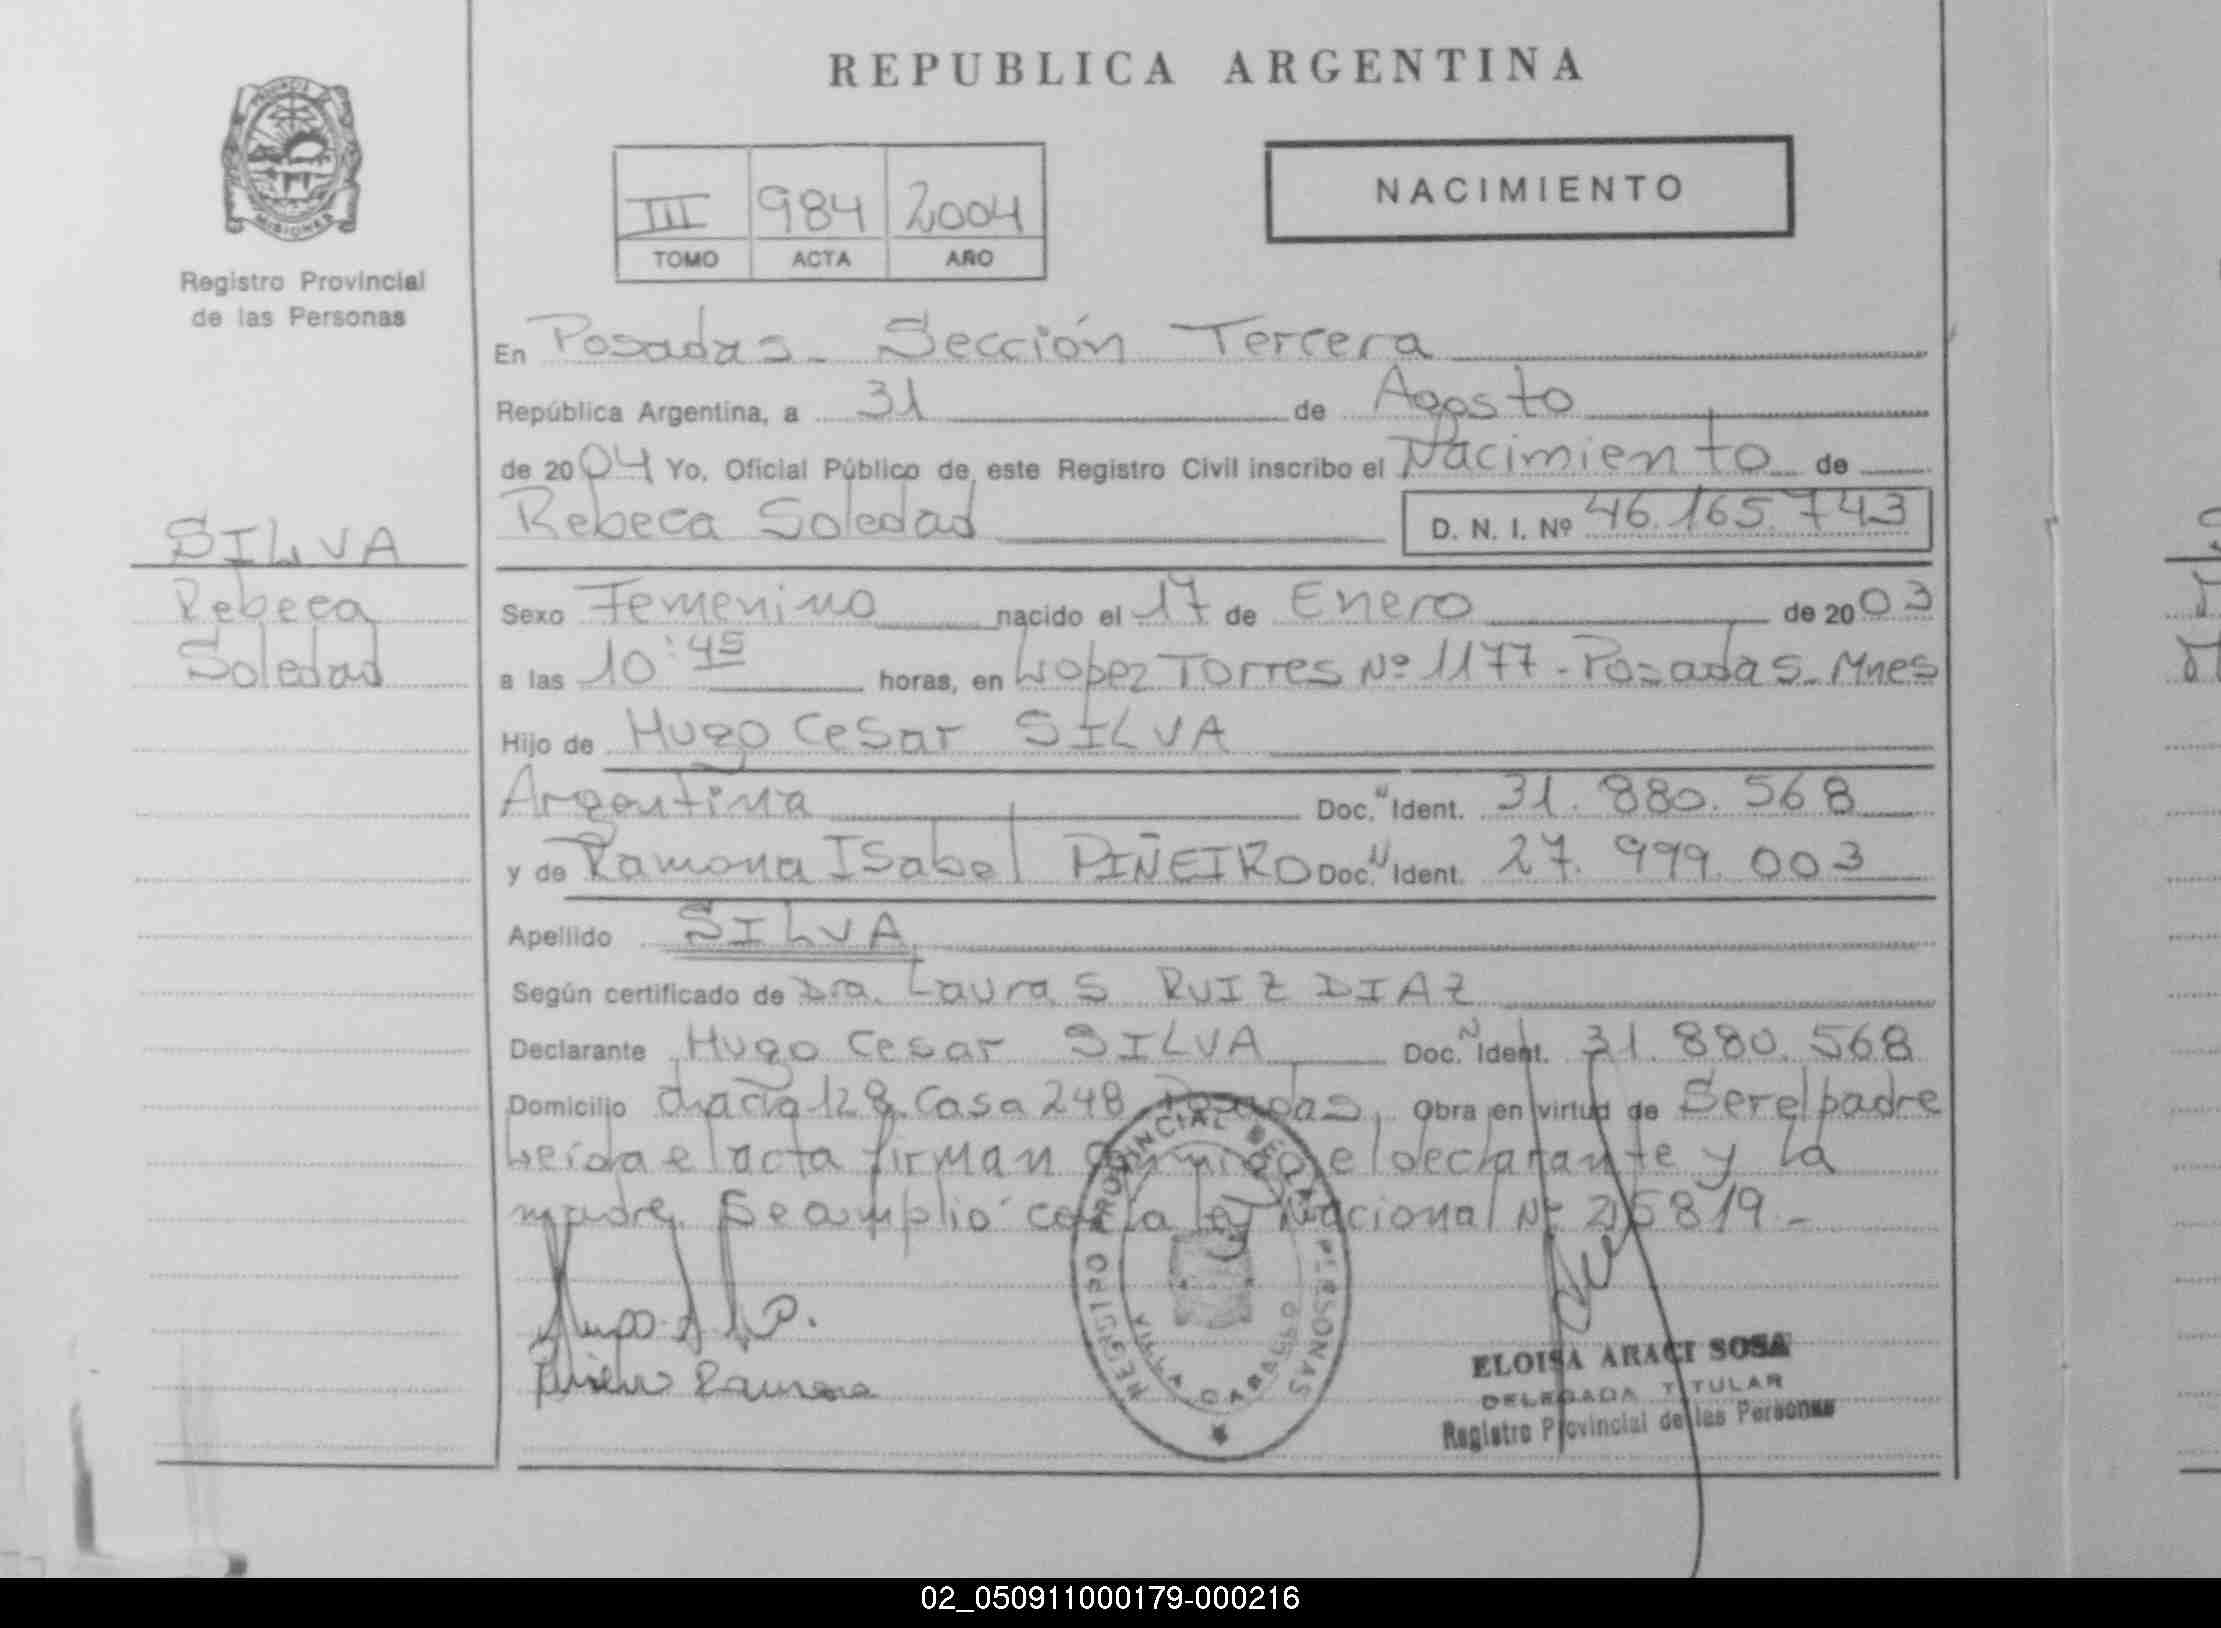 REPUBLICA ARGENTINA
PROVINCIA DE
MISIONES
Registro Provincial
de las Personas
III 984 2004
TOMO ACTA AÑO
NACIMIENTO
En Posadas - Sección Tercera
República Argentina, a 31 de Agosto
de 2004 Yo, Oficial Público de este Registro Civil inscribo el Nacimiento de
Rebeca Soledad D. N. I. Nº 46.165.743
SILVA
Rebeca
Soledad
Sexo Femenino nacido el 17 de Enero de 2003
a las 10:45 horas, en Lopez Torres Nº 1177 - Posadas - Mnes
Hijo de Hugo Cesar SILVA
Argentina Doc. N Ident. 31.880.568
y de Ramona Isabel PIÑEIRO Doc. N Ident. 27.999.003
Apellido SILVA
Según certificado de Dra. Laura S RUIZ DIAZ
Declarante Hugo Cesar SILVA Doc. N Ident. 31.880.568
Domicilio chacra 128 Casa 248 Posadas, Obra en virtud de Ser el padre
Leida el acta firman conmigo el declarante y la
madre. Se amplió con la ley Nacional Nº 25819 -
REGISTRO PROVINCIAL DE LAS PERSONAS
VILLA CABALLO
Piñeiro Ramona
ELOISA ARACI SOSA
DELEGADA TITULAR
Registro Provincial de las Personas
02_050911000179-000216